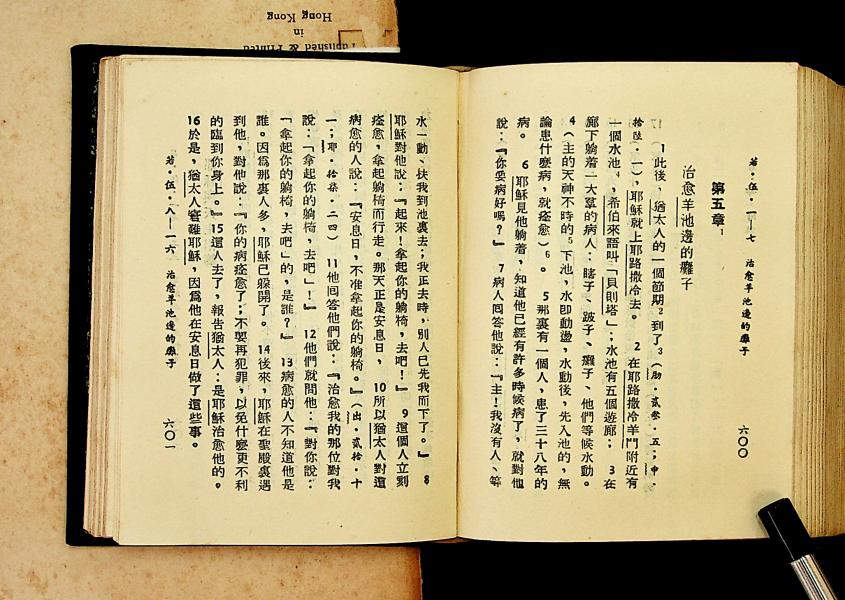 Published & Printed
in
Hong Kong
若·伍·一—七　治愈羊池邊的癱子　六〇〇
第五章
治愈羊池邊的癱子
1此後，猶太人的一個節期2到了3（肋·貳叁·五；申·
拾陸·一），耶穌就上耶路撒冷去。　2在耶路撒冷羊門附近有
一個水池4，希伯來語叫「貝則塔」；水池有五個遊廊；　3在
廊下躺着一大羣的病人：瞎子、跛子、癱子、他們等候水動。
4（主的天神不時的5下池，水即動盪，水動後，先入池的，無
論患什麼病，就痊愈）6。　5那裏有一個人，患了三十八年的
病。　6耶穌見他躺着，知道他已經有許多時候病了，就對他
說：『你要病好嗎？』　7病人回答他說：『主！我沒有人、等
水一動、扶我到池裏去；我正去時，別人已先我而下了。』　8
耶穌對他說：『起來！拿起你的躺椅，去吧！』　9這個人立刻
痊愈，拿起躺椅而行走。那天正是安息日，　10所以猶太人對這
病愈的人說：「安息日，不准拿起你的躺椅。」（出·貳拾·十
一；耶·拾柒·二四）　11他回答他們說：『治愈我的那位對我
說：「拿起你的躺椅，去吧」！』　12他們就問他：『對你說：
「拿起你的躺椅，去吧」的，是誰？』　13病愈的人不知道他是
誰。因爲那裏人多，耶穌已躱開了。　14後來，耶穌在聖殿裏遇
到他，對他說：『你的病痊愈了；不要再犯罪，以免什麼更不利
的臨到你身上。』15這人去了，報告猶太人：是耶穌治愈他的。
16於是，猶太人窘難耶穌，因爲他在安息日做了這些事。
若·伍·八—一六　治愈羊池邊的癱子　六〇一